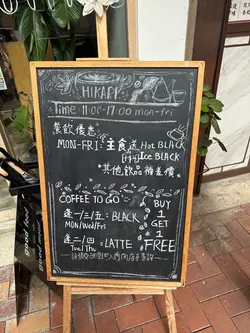 HIKARI
Time 11:00-17:00 mon-fri
餐飲優惠
MON-FRI: 主食送 Hot BLACK
Ice BLACK
*其他飲品補差價*
COFFEE TO GO
逢一/三/五: BLACK
Mon/Wed/
BUY
1
GET
1
FREE
逢二/四: LATTE
Tue/Thu
good mood